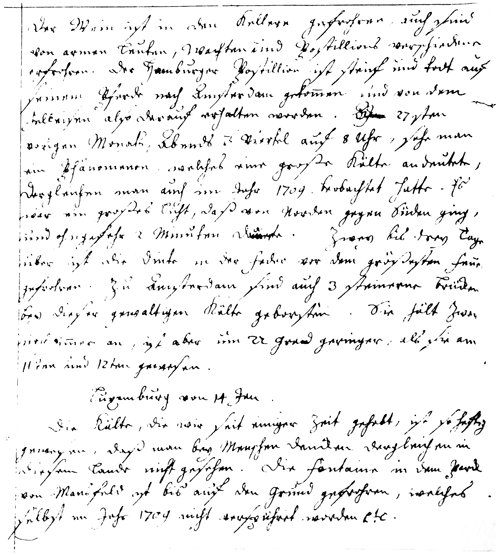 Der Wein ist in den Kellern gefrohren auch sind
von armen Leuten, Wachten und Postillions verschiedene
erfrohren. Der Hamburger Postillion ist steif und todt auf
seinem Pferde nach Amsterdam gekommen und von dem
also darauf erhalten worden. 27sten
vorigen Monats, Abends 3 Viertel auf 8 Uhr, sahe man
ein Phänomenon welches eine große Kälte andeutete,
dergleichen man auch im Jahr 1709. beobachtet hatte. Es
war ein großes Licht, daß von Norden gegen Süden ging,
und ohngefehr 2 Minuten dauerte. Zwey bis drey Tage
über ist die Dinte in der Feder vor dem größesten Feuer
gefrohren. Zu Amsterdam sind auch 3 steinerne Brücken
bey dieser gewaltigen Kälte geborsten. Sie hält zwar
noch immer an, ist aber um 22 Grad geringer, als sie am
11ten und 12ten gewesen.
Luxemburg von 14 Jan.
Die Kälte, die wir seit einiger Zeit gehabt, ist so heftig
gewesen, daß man bey Menschen Denken dergleichen in
diesem Lande nicht gesehen. Die Fontaine in dem Parck
von Mansfeld ist bis auf den Grund gefrohren, welches
selbst im Jahr 1709 nicht verspühret worden etc.